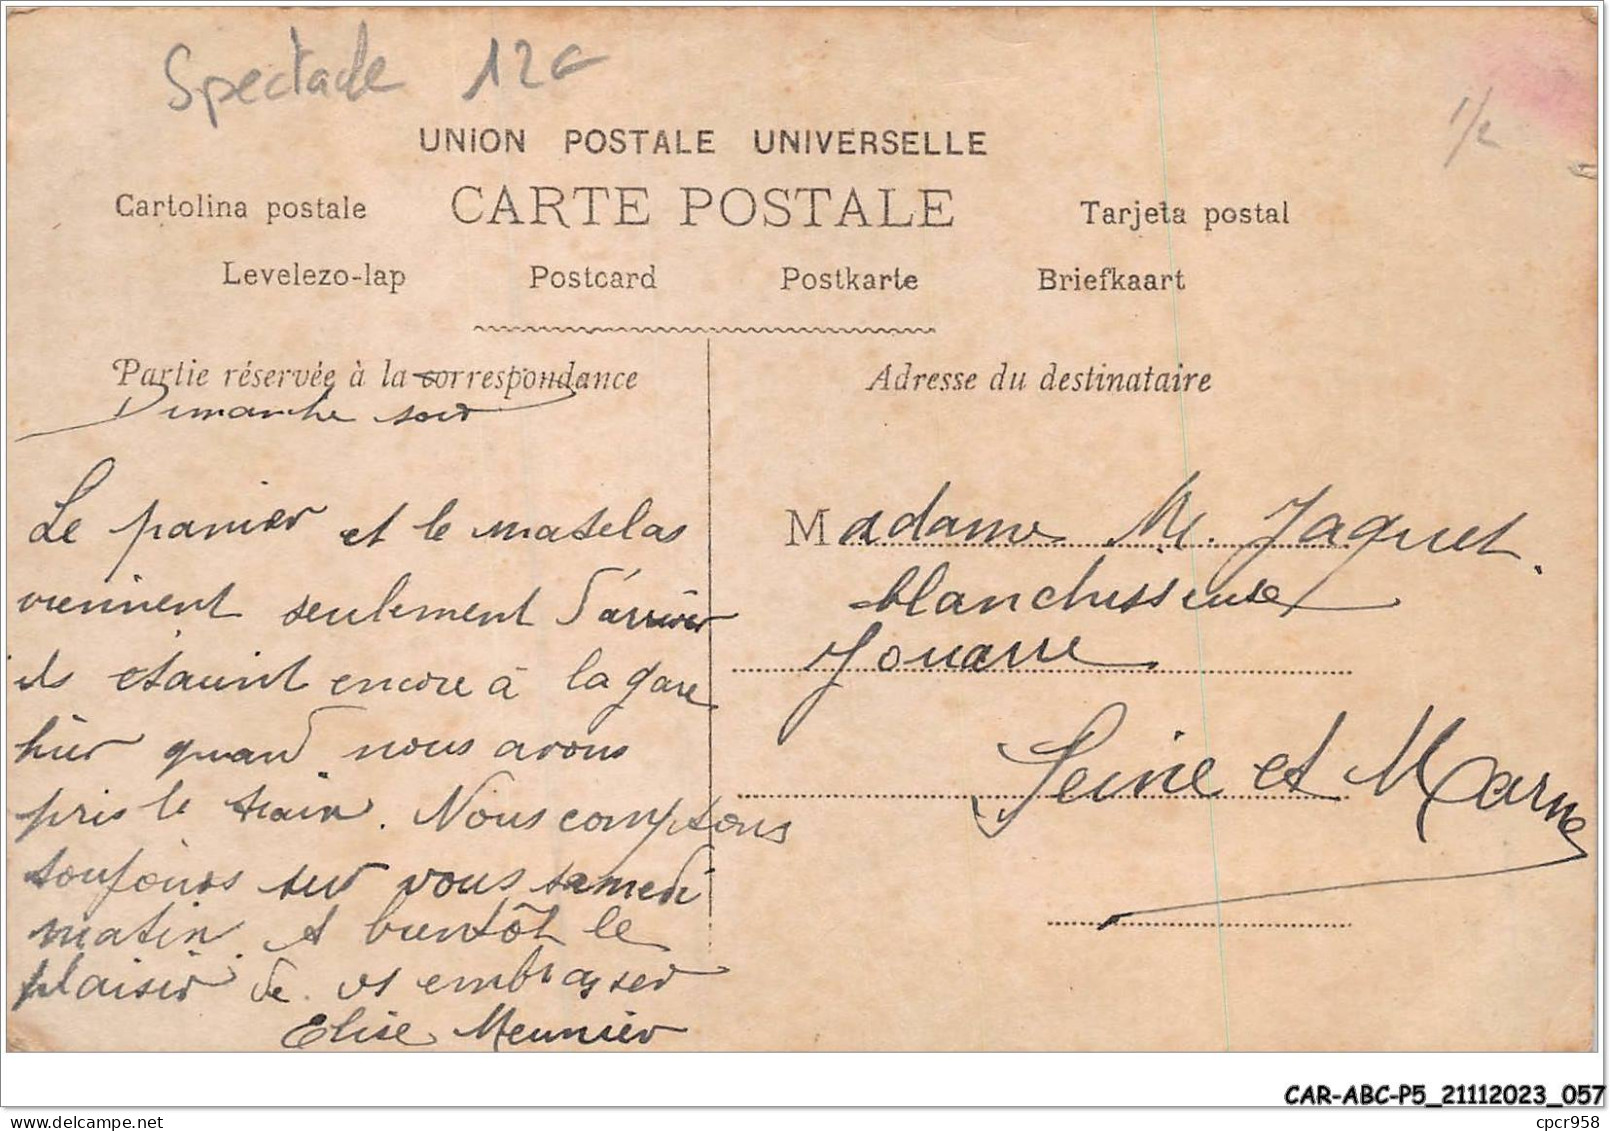 Spectacle 12€
1/2
UNION POSTALE UNIVERSELLE
Cartolina postale CARTE POSTALE Tarjeta postal
Levelezo-lap Postcard Postkarte Briefkaart
Partie réservée à la correspondance
Adresse du destinataire
Dimanche soir
Le panier et le matelas
viennent seulement d'arriver
ils étaient encore à la gare
hier quand nous avons
pris le train. Nous comptons
toujours sur vous samedi
matin. A bientôt le
plaisir de vs embrasser
Elise Meunier
Madame M. Jaquet.
blanchisseuse
Jouarre
Seine et Marne
CAR-ABC-P5_21112023_057
cpcr958